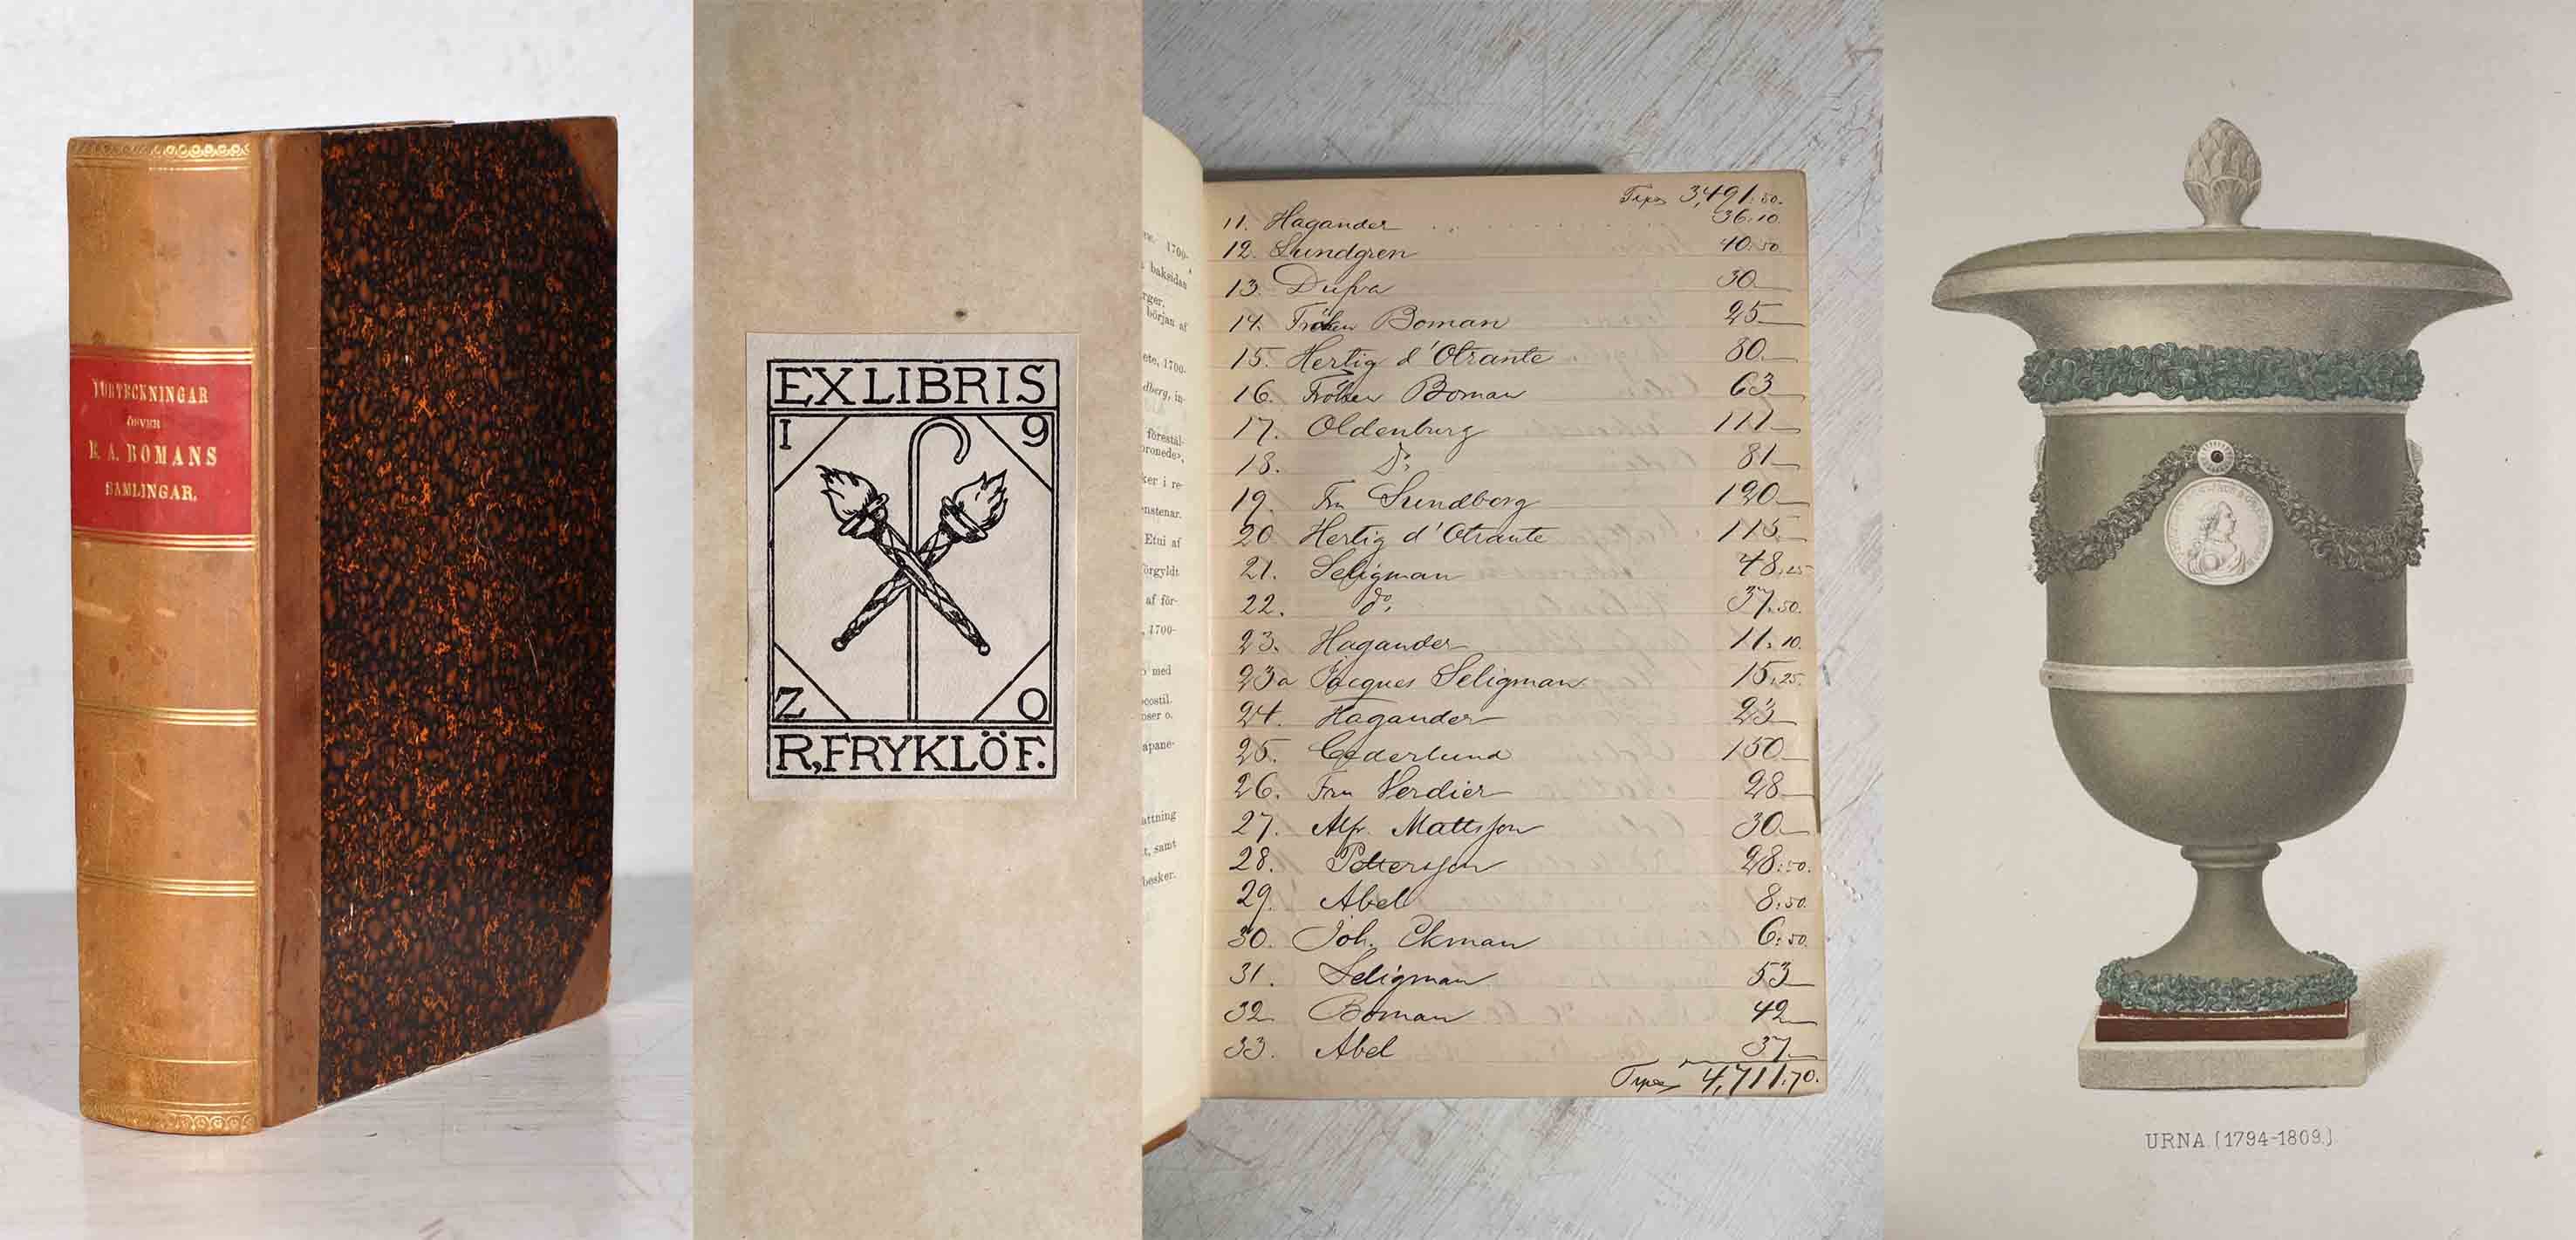 FÖRTECKNINGAR
ÖFVER
R. A. BOMANS
SAMLINGAR.
EX LIBRIS
1 9
2 0
R, FRYKLÖF.
1700-
baksidan
början af
1700-
dberg, in-
förestäl-
ker i re-
enstenar.
Etui af
förgyldt
af för-
, 1700-
med
attning
t, samt
3,491:50.
11. Hagander 36:10
12. Lundgren 40:50
13. Dufva 30
14. Fröken Boman 25
15. Hertig d'Otrante 80
16. Fröken Boman 63
17. Oldenburg 111
18. Do 81
19. Fru Lundborg 120
20. Hertig d'Otrante 115
21. Seligman 48,25
22. do, 37,50.
23. Hagander 11,10.
23a Jacques Seligman 15,25.
24. Hagander 23
25. Cederlund 150
26. Fru Verdier 28
27. Alfr. Mattsson 30
28. Pettersson 28:50.
29. Abel 8,50.
30. Joh. Ekman 6:50.
31. Seligman 53
32 Boman 42
33. Abel 37
4,711.70.
URNA. (1794-1809.)